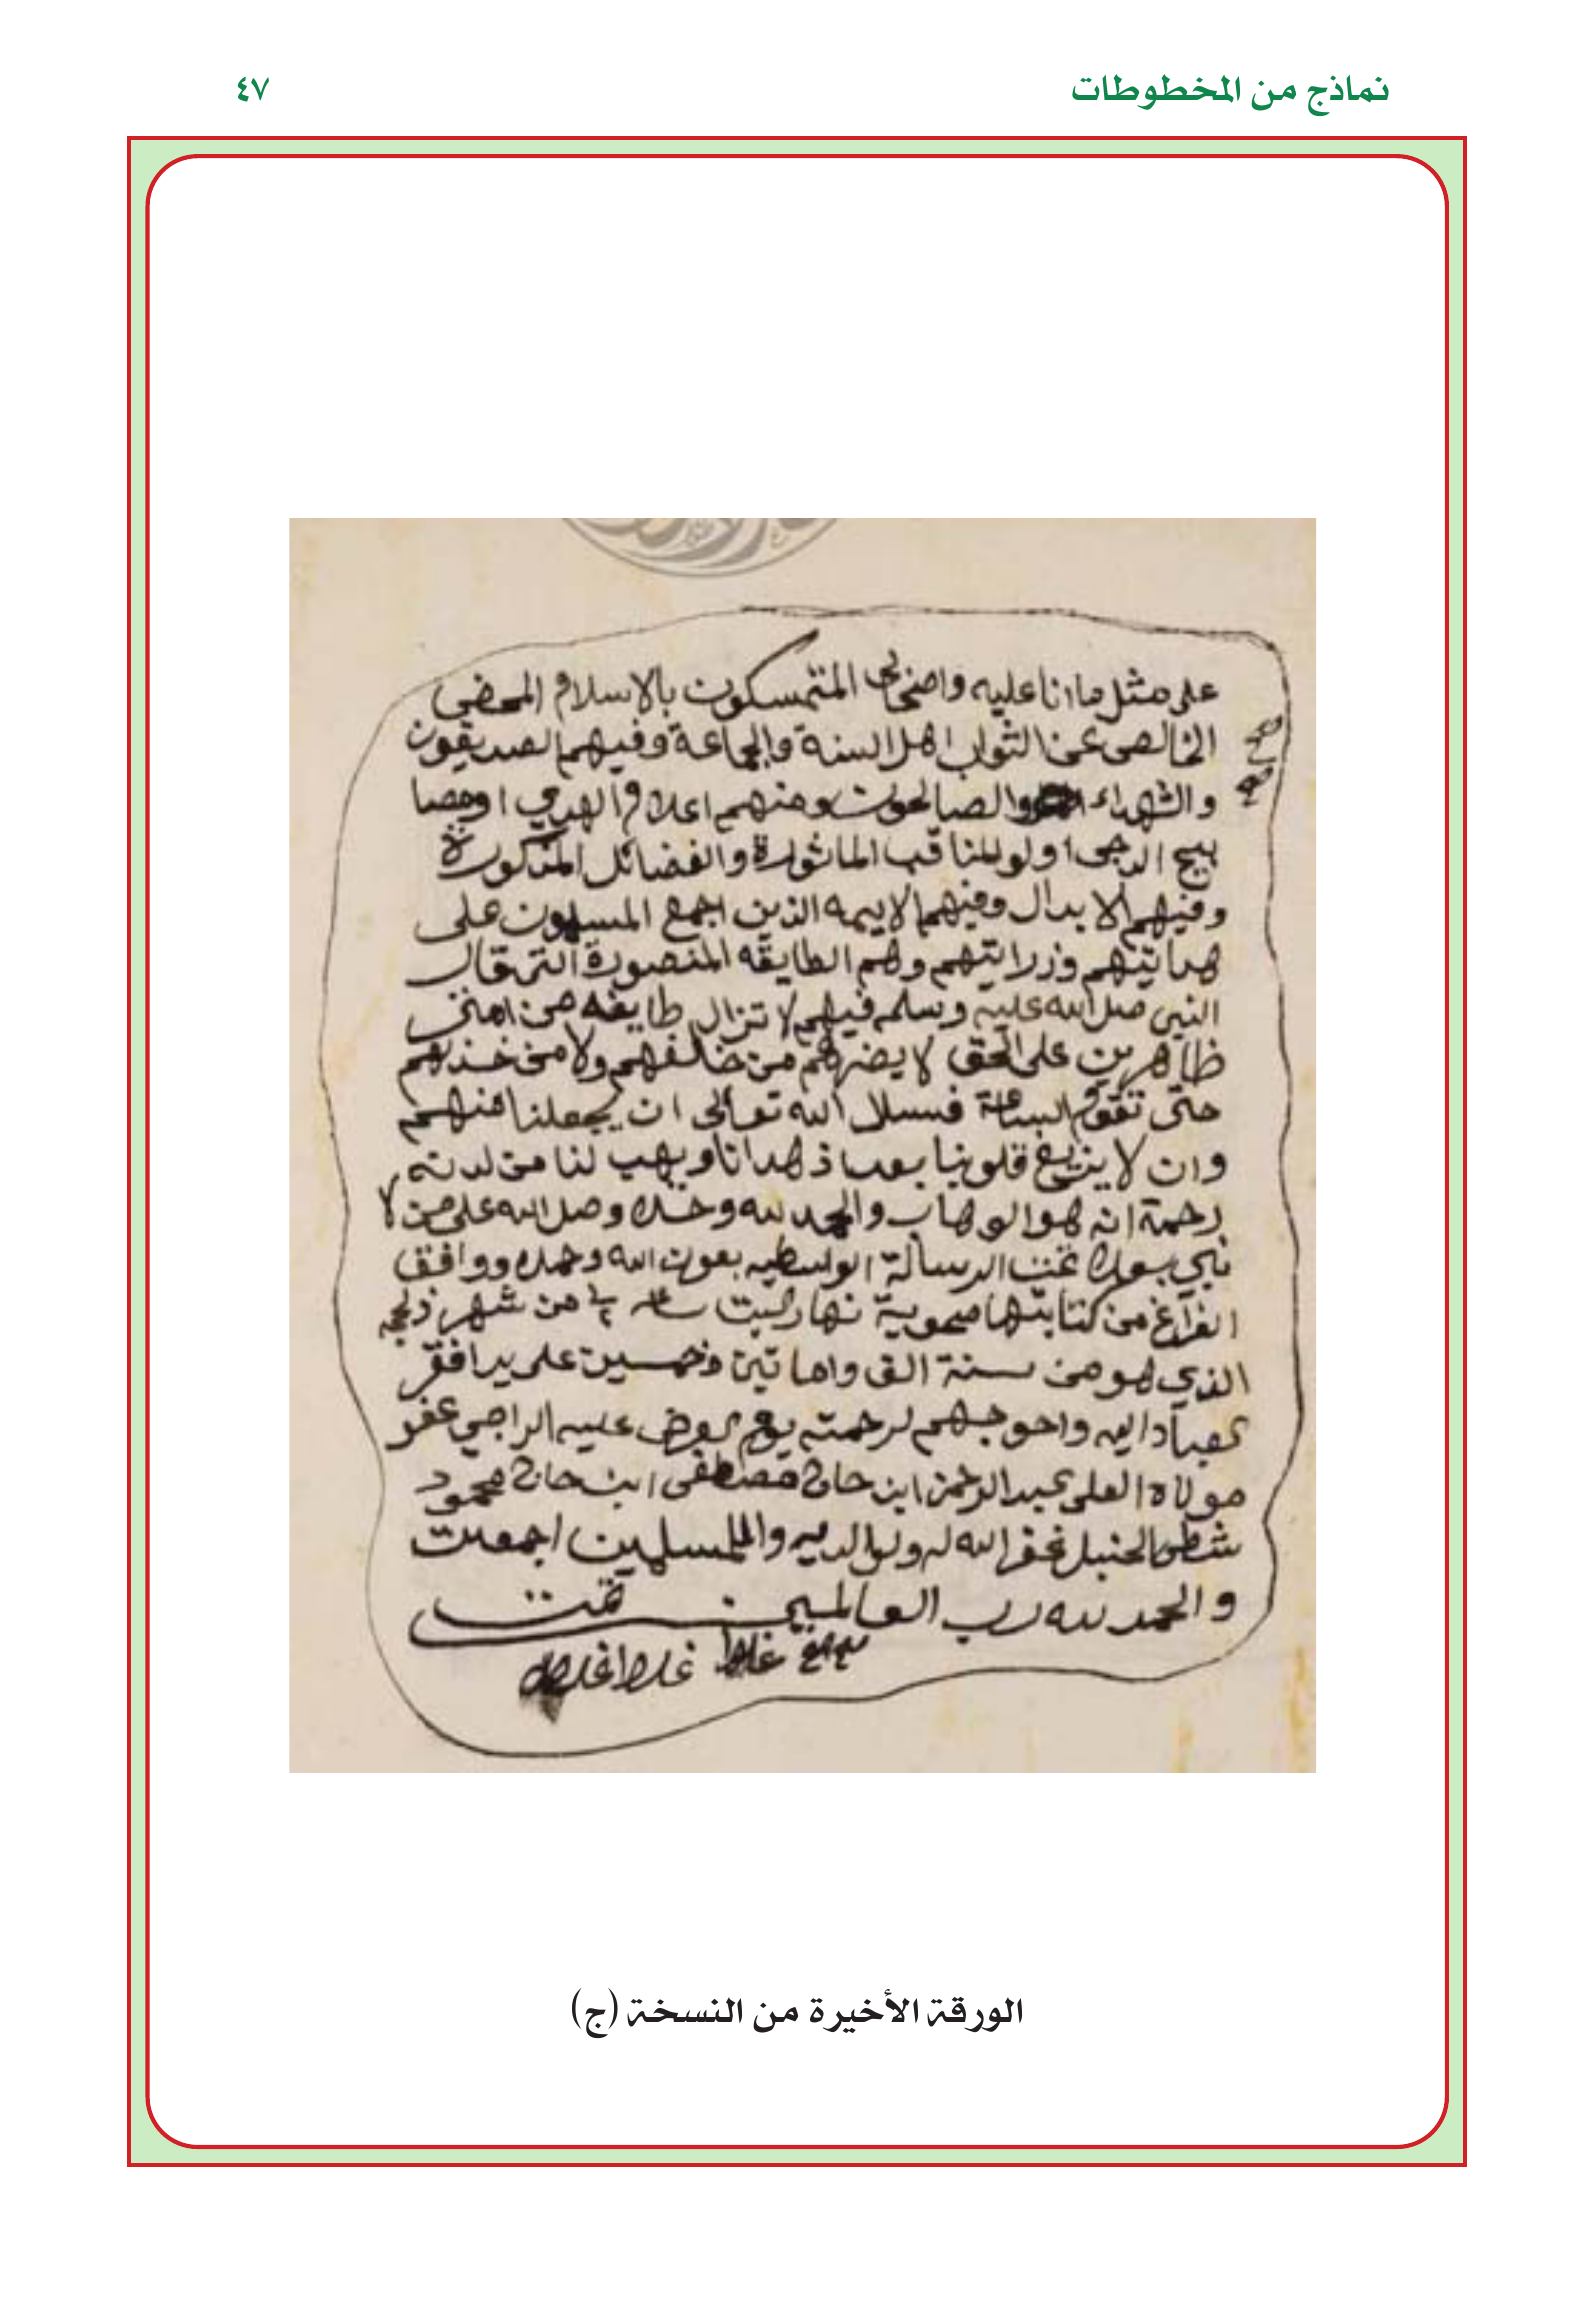 نماذج من المخطوطات
٤٧
على مثل ما انا عليه واصحابى المتمسكون بالاسلام المحض
الخالص عن الثواب اهل السنة والجماعة وفيهم الصديقون
والشهداء والصالحون ومنهم اعلام الهدي اومصا
بيح الدجى اولو المناقب الماثورة والفضائل المذكورة
وفيهم الابدال وفيهم الايمه الذين اجمع المسلمون على
هدايتهم ودرايتهم وهم الطايفه المنصورة التي قال
النبي صلى الله عليه وسلم فيهم لا تزال طايفه من امتي
ظاهرين على الحق لا يضرهم من خالفهم ولا من خذلهم
حتى تقوم الساعة فنسال الله تعالى ان يجعلنا منهم
وان لا يزيغ قلوبنا بعد اذ هدانا ويهب لنا من لدنه
رحمة انه هو الوهاب والحمد لله وحده وصلى الله على من لا
نبي بعده تمت الرسالة الواسطيه بعون الله وحمده ووافق
الفراغ من كتابتها ضحوية نهار السبت من شهر ذلحجه
الذي هو من سنة الف واماتين وخمسين على يد افقر
عباد اليه واحوجهم لرحمته يوم العرض عليه الراجي عفو
مولاه العلي عبد الرحمن ابن حاج مصطفى ابن حاج محمود
شطي الحنبلي غفر الله له ولوالديه والمسلمين اجمعين
والحمد لله رب العالمين تمت
غلط غلط غلط
الورقة الأخيرة من النسخة (ج)